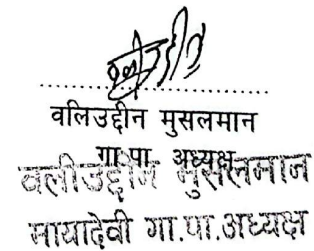 वलिउद्दीन मुसलमान
गा.पा. अध्यक्ष
वलीउद्दीन मुसलमान
मायादेवी गा.पा.अध्यक्ष